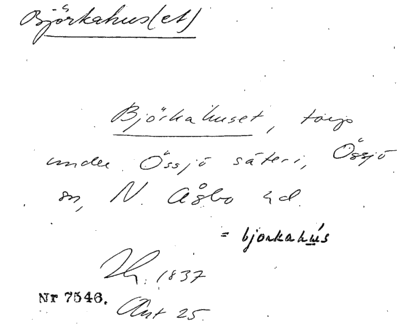 Björkahus(et)
Björkahuset, torp
under Össjö säteri, Össjö
sn, N. Åsbo hd.
= bjorkahus
1837
Nr 7546.
Ant 25